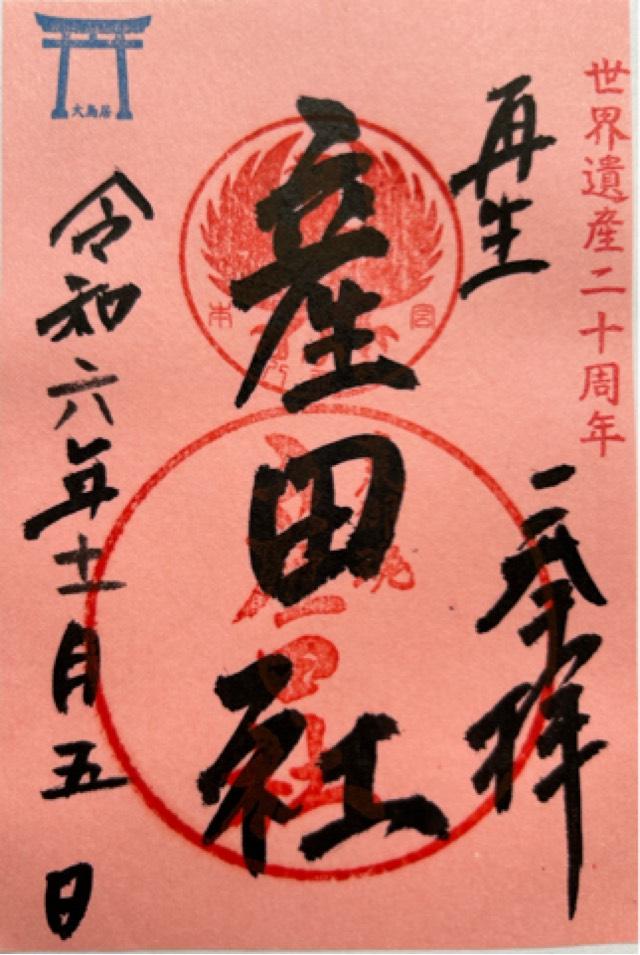 世界遺産二十周年
再生
奉拝
産田社
本宮
令和六年十一月五日
大鳥居